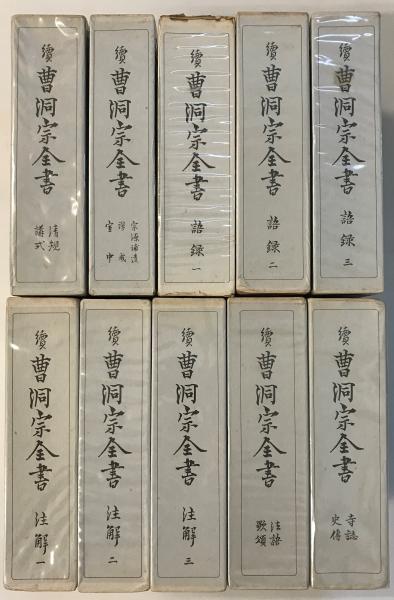 續曹洞宗全書 清規 講式
續曹洞宗全書 宗源補遺 禪戒 室中
續曹洞宗全書 語録 一
續曹洞宗全書 語録 二
續曹洞宗全書 語録 三
續曹洞宗全書 注解 一
續曹洞宗全書 注解 二
續曹洞宗全書 注解 三
續曹洞宗全書 法語 歌頌
續曹洞宗全書 寺誌 史傳